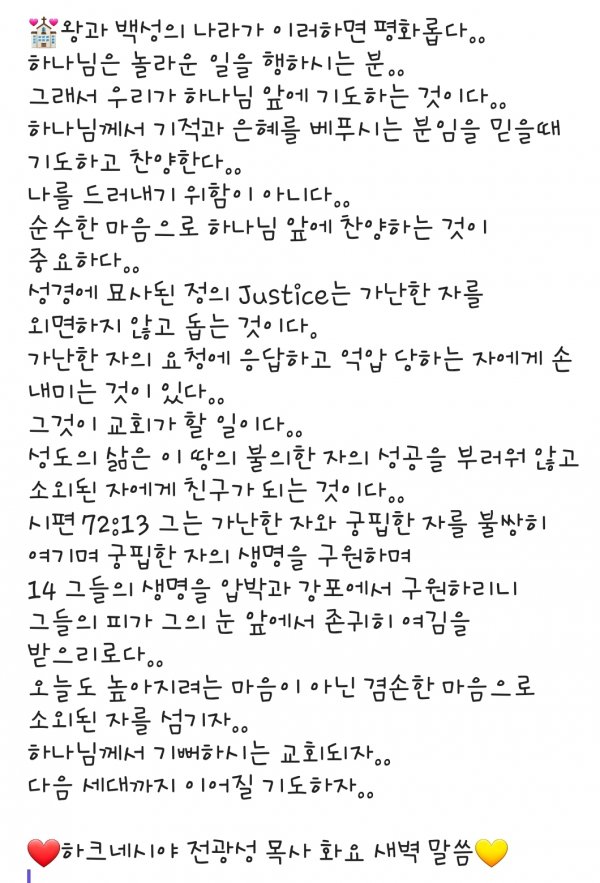 💒왕과 백성의 나라가 이러하면 평화롭다。。
하나님은 놀라운 일을 행하시는 분。。
그래서 우리가 하나님 앞에 기도하는 것이다。。
하나님께서 기적과 은혜를 베푸시는 분임을 믿을때
기도하고 찬양한다。。
나를 드러내기 위함이 아니다。。
순수한 마음으로 하나님 앞에 찬양하는 것이
중요하다。。
성경에 묘사된 정의 Justice는 가난한 자를
외면하지 않고 돕는 것이다。
가난한 자의 요청에 응답하고 억압 당하는 자에게 손
내미는 것이 있다。。
그것이 교회가 할 일이다。。
성도의 삶은 이 땅의 불의한 자의 성공을 부러워 않고
소외된 자에게 친구가 되는 것이다。。
시편 72:13 그는 가난한 자와 궁핍한 자를 불쌍히
여기며 궁핍한 자의 생명을 구원하며
14 그들의 생명을 압박과 강포에서 구원하리니
그들의 피가 그의 눈 앞에서 존귀히 여김을
받으리로다。。
오늘도 높아지려는 마음이 아닌 겸손한 마음으로
소외된 자를 섬기자。。
하나님께서 기뻐하시는 교회되자。。
다음 세대까지 이어질 기도하자。。
❤️하크네시야 전광성 목사 화요 새벽 말씀💛